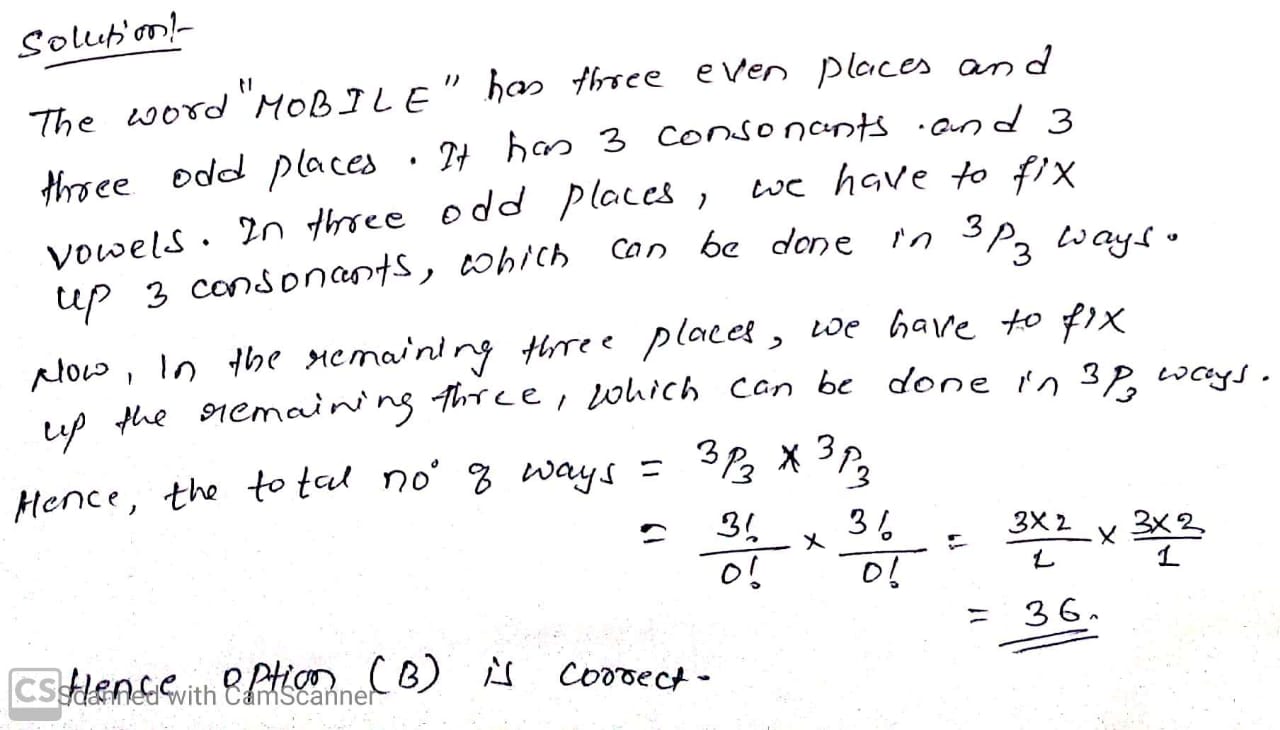 Solution:-
The word "MOBILE" has three even places and
three odd places. It has 3 consonants and 3
vowels. In three odd places, we have to fix
up 3 consonants, which can be done in 3P3 ways.
Now, In the remaining three places, we have to fix
up the remaining three, which can be done in 3P3 ways.
Hence, the total no of ways = 3P3 × 3P3
= 3!/0! × 3!/0! = 3×2/1 × 3×2/1
= 36.
Hence option (B) is correct.
CS Scanned with CamScanner